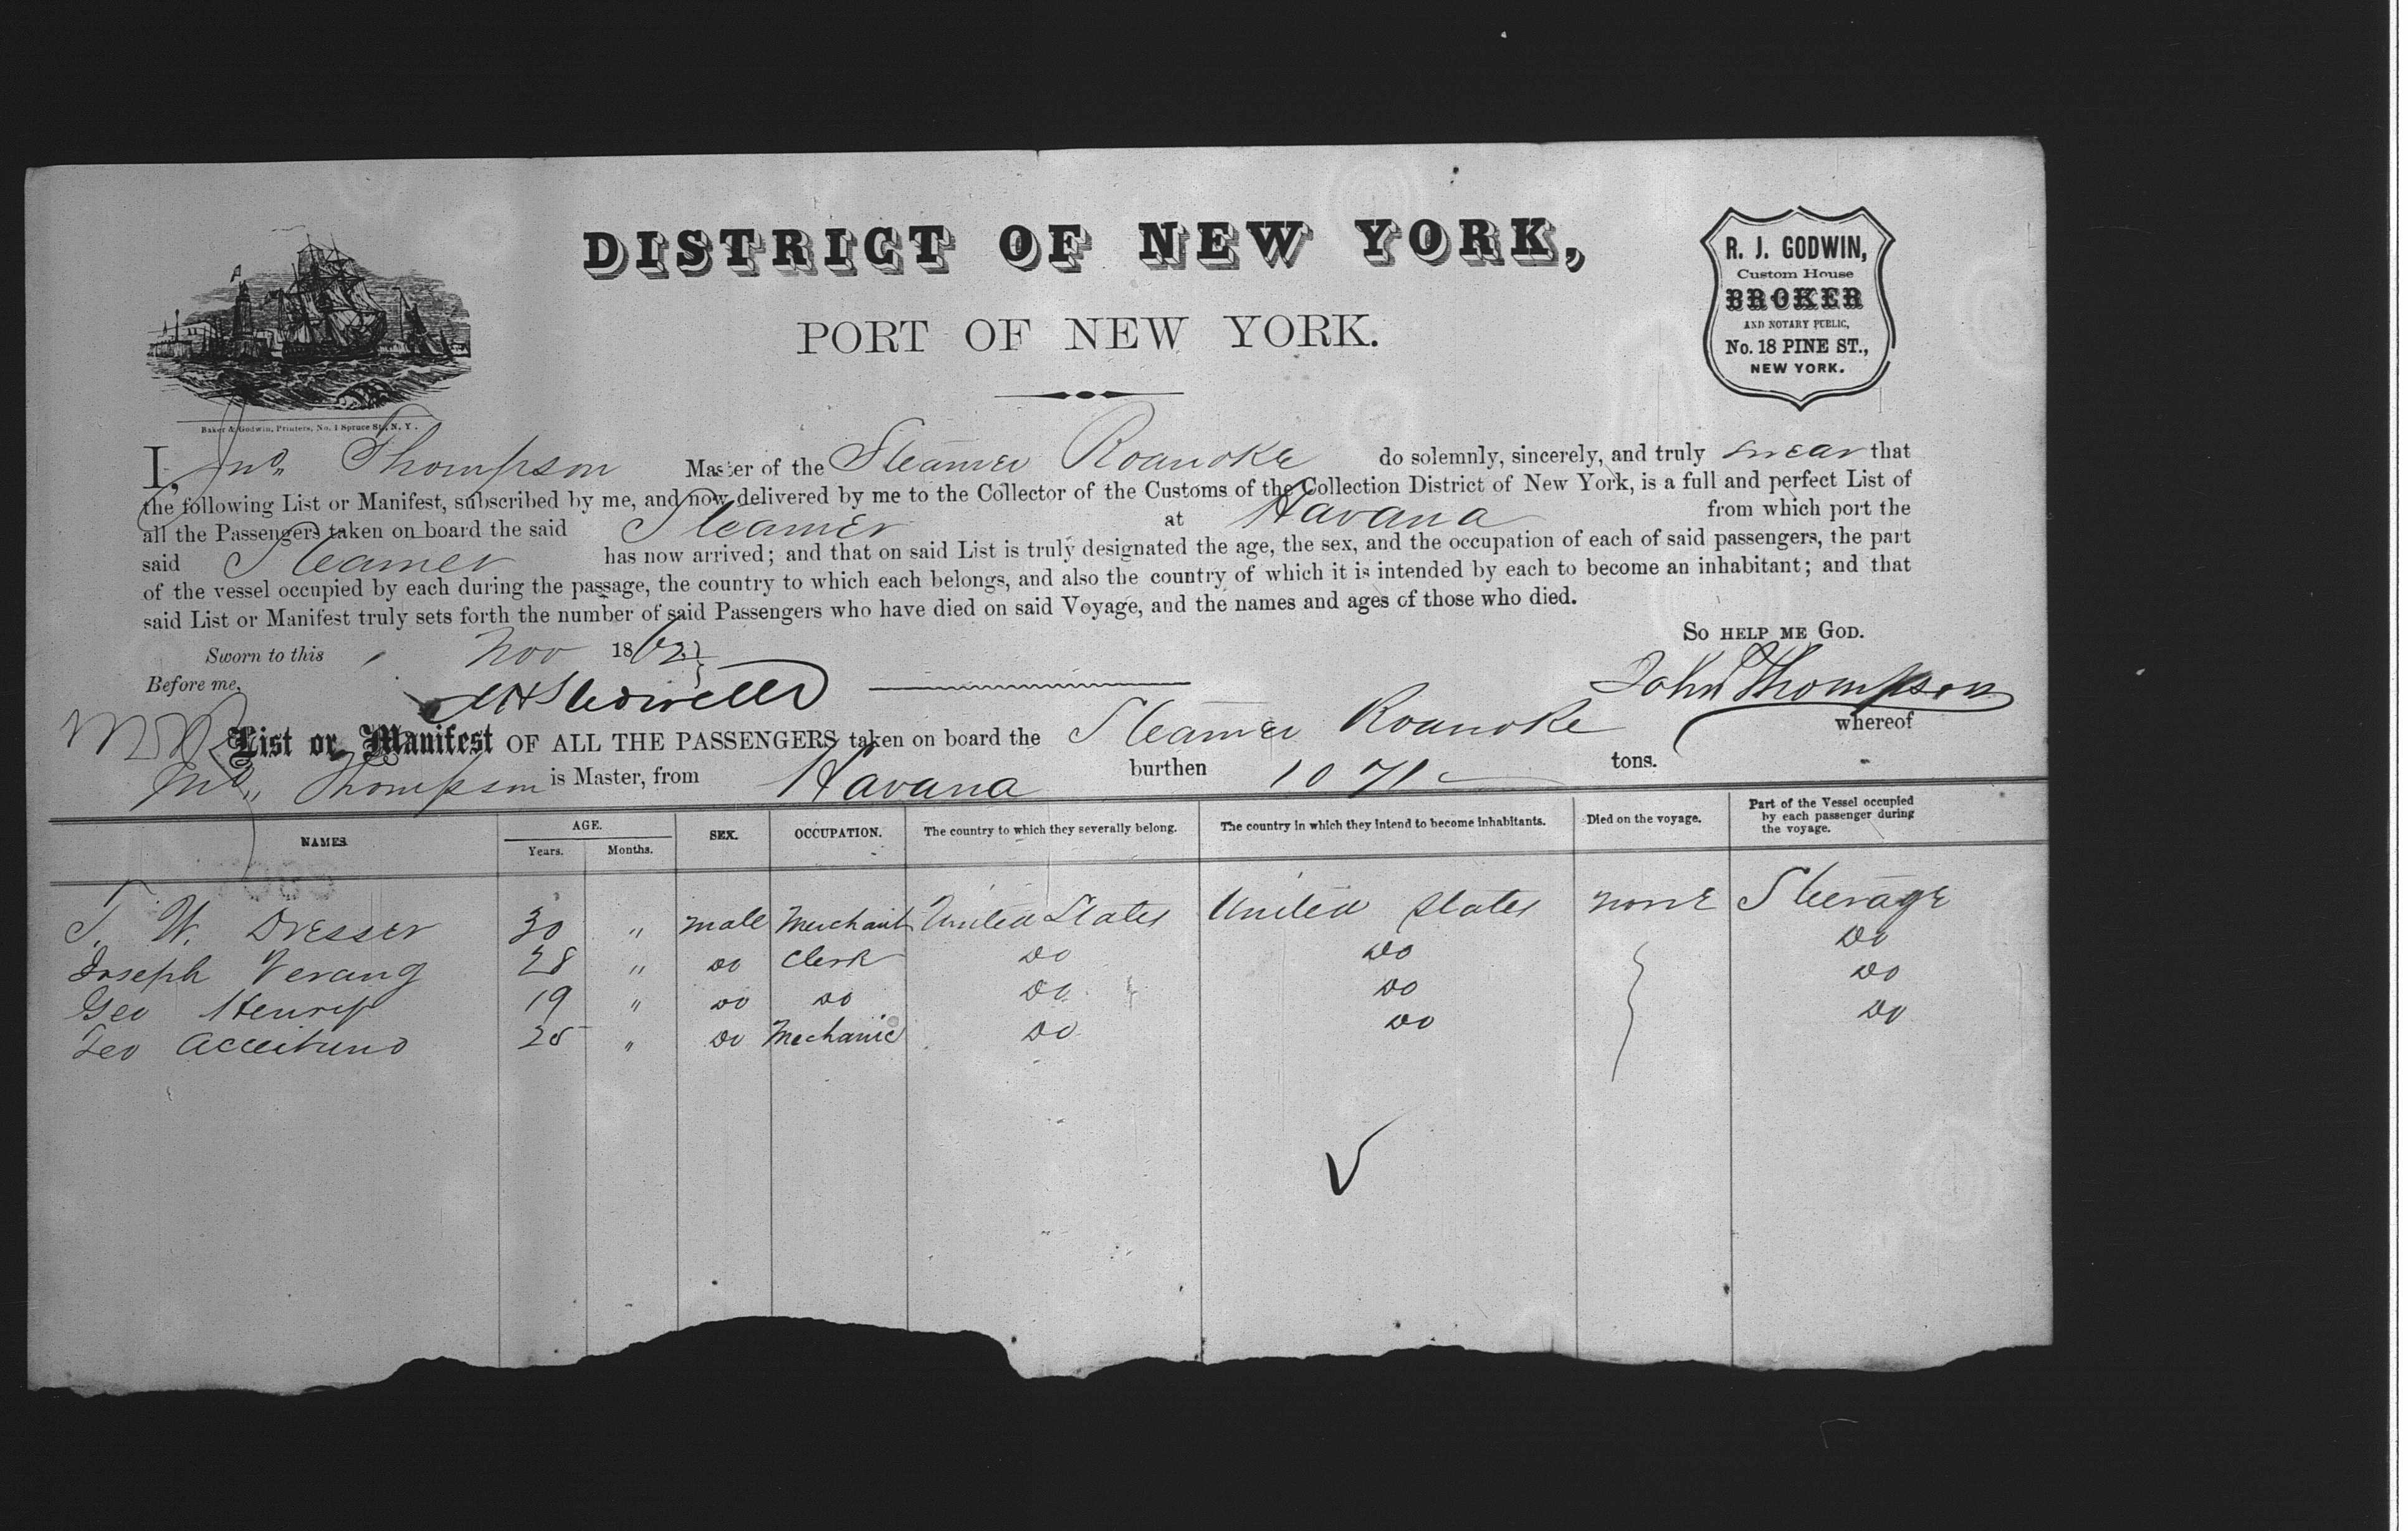 DISTRICT OF NEW YORK,
PORT OF NEW YORK.
R. J. GODWIN,
Custom House
BROKER
AND NOTARY PUBLIC,
No. 18 PINE ST.,
NEW YORK.
Baker & Godwin, Printers, No. 1 Spruce St., N. Y.
I, Jno. Thompson Master of the Steamer Roanoke do solemnly, sincerely, and truly swear that
the following List or Manifest, subscribed by me, and now delivered by me to the Collector of the Customs of the Collection District of New York, is a full and perfect List of
all the Passengers taken on board the said Steamer at Havana from which port the
said Steamer has now arrived; and that on said List is truly designated the age, the sex, and the occupation of each of said passengers, the part
of the vessel occupied by each during the passage, the country to which each belongs, and also the country of which it is intended by each to become an inhabitant; and that
said List or Manifest truly sets forth the number of said Passengers who have died on said Voyage, and the names and ages of those who died.
SO HELP ME GOD.
Sworn to this Nov 1862
Before me,
John Thompson
List or Manifest OF ALL THE PASSENGERS taken on board the Steamer Roanoke whereof
Jno. Thompson is Master, from Havana burthen 1071 tons.
NAMES AGE. Years. Months. SEX. OCCUPATION. The country to which they severally belong. The country in which they intend to become inhabitants. Died on the voyage. Part of the Vessel occupied by each passenger during the voyage.
T. W. Dresser 30 " male Merchant United States United States none Steerage
Joseph Verang 28 " do Clerk do do do
Geo Henry 19 " do do do do do
Leo 25 " do Mechanic do do do